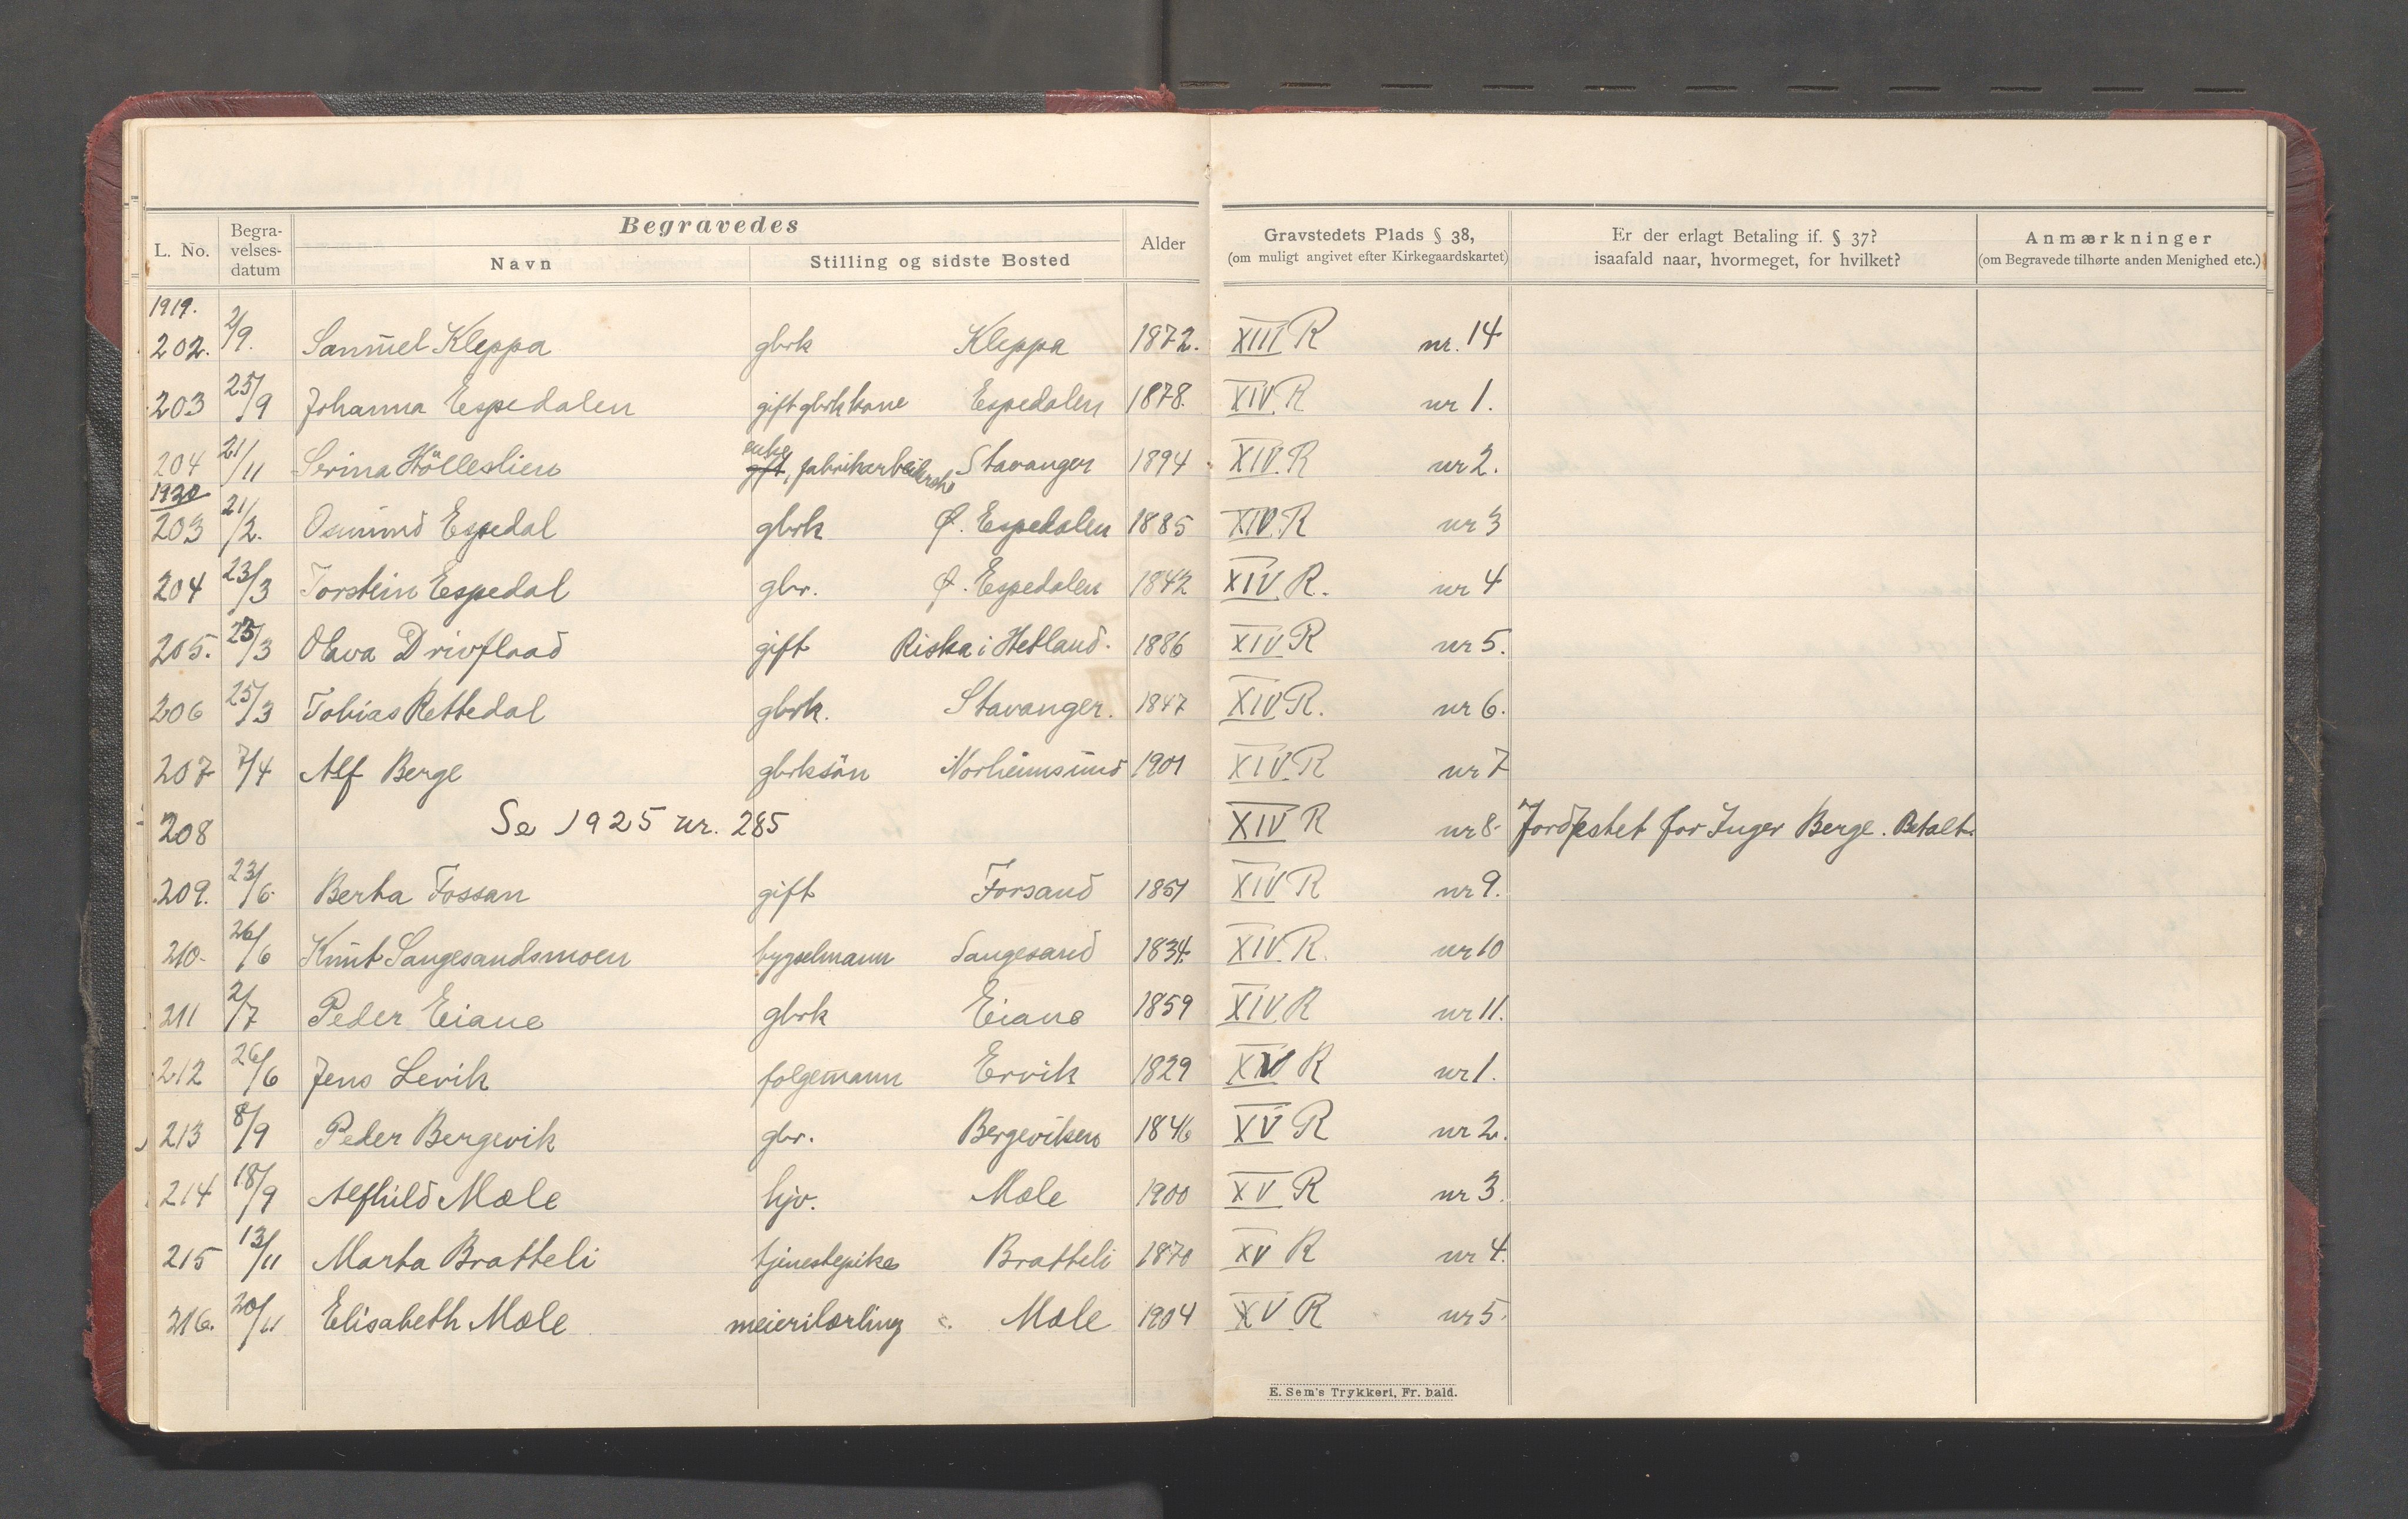 Begravedes
L. No. Begra-velses-datum Navn Stilling og sidste Bosted Alder Gravstedets Plads § 38, (om muligt angivet efter Kirkegaardskartet) Er der erlagt Betaling if. § 37? isaafald naar, hvormeget, for hvilket? Anmærkninger (om Begravede tilhørte anden Menighed etc.)
1919.
202. 2/9. Samuel Kleppa gbrk Kleppa 1872. XIII R nr. 14
203 25/9 Johanna Espedalen gift gbrk kone Espedalen 1878. XIV R nr 1.
204 21/11 Serina Hölleslien enke gift, fabrikarbeiderske Stavanger 1894 XIV R nr 2.
1920
203 21/2. Osmund Espedal gbrk Ø. Espedalen 1885 XIV R nr 3
204 23/3 Torstein Espedal gbr. Ø. Espedalen 1842 XIV R. nr 4
205. 25/3 Olava Drivflaad gift Riska i Hetland. 1886 XIV R nr 5.
206 25/3 Tobias Rettedal gbrk. Stavanger. 1847 XIV R. nr 6.
207 7/4 Alf Berge gbrksön Norheimsund 1901 XIV R nr 7
208 Se 1925 nr. 285 XIV R nr 8. Jordfestet for Inger Berge. Betalt.
209. 23/6. Berta Fossan gift Forsand 1851 XIV R nr 9.
210. 26/6 Knut Sangesandsmoen bygselmann Sangesand 1834. XIV R. nr 10
211 2/7 Peder Eiane gbrk Eiane 1859 XIV R nr 11.
212 26/6 Jens Levik folgemann Ervik 1829 XV R nr 1.
213 8/9 Peder Bergevik gbr. Bergeviken 1846 XV R nr 2.
214 18/9 Alfhild Mæle hjv. Mæle 1900 XV R nr 3.
215 13/11 Marta Bratteli tjenestepike Bratteli 1870 XV R nr 4.
216. 20/11 Elisabeth Mæle meierilærling Mæle 1904 XV R nr 5.
E. Sem's Trykkeri, Fr. hald.